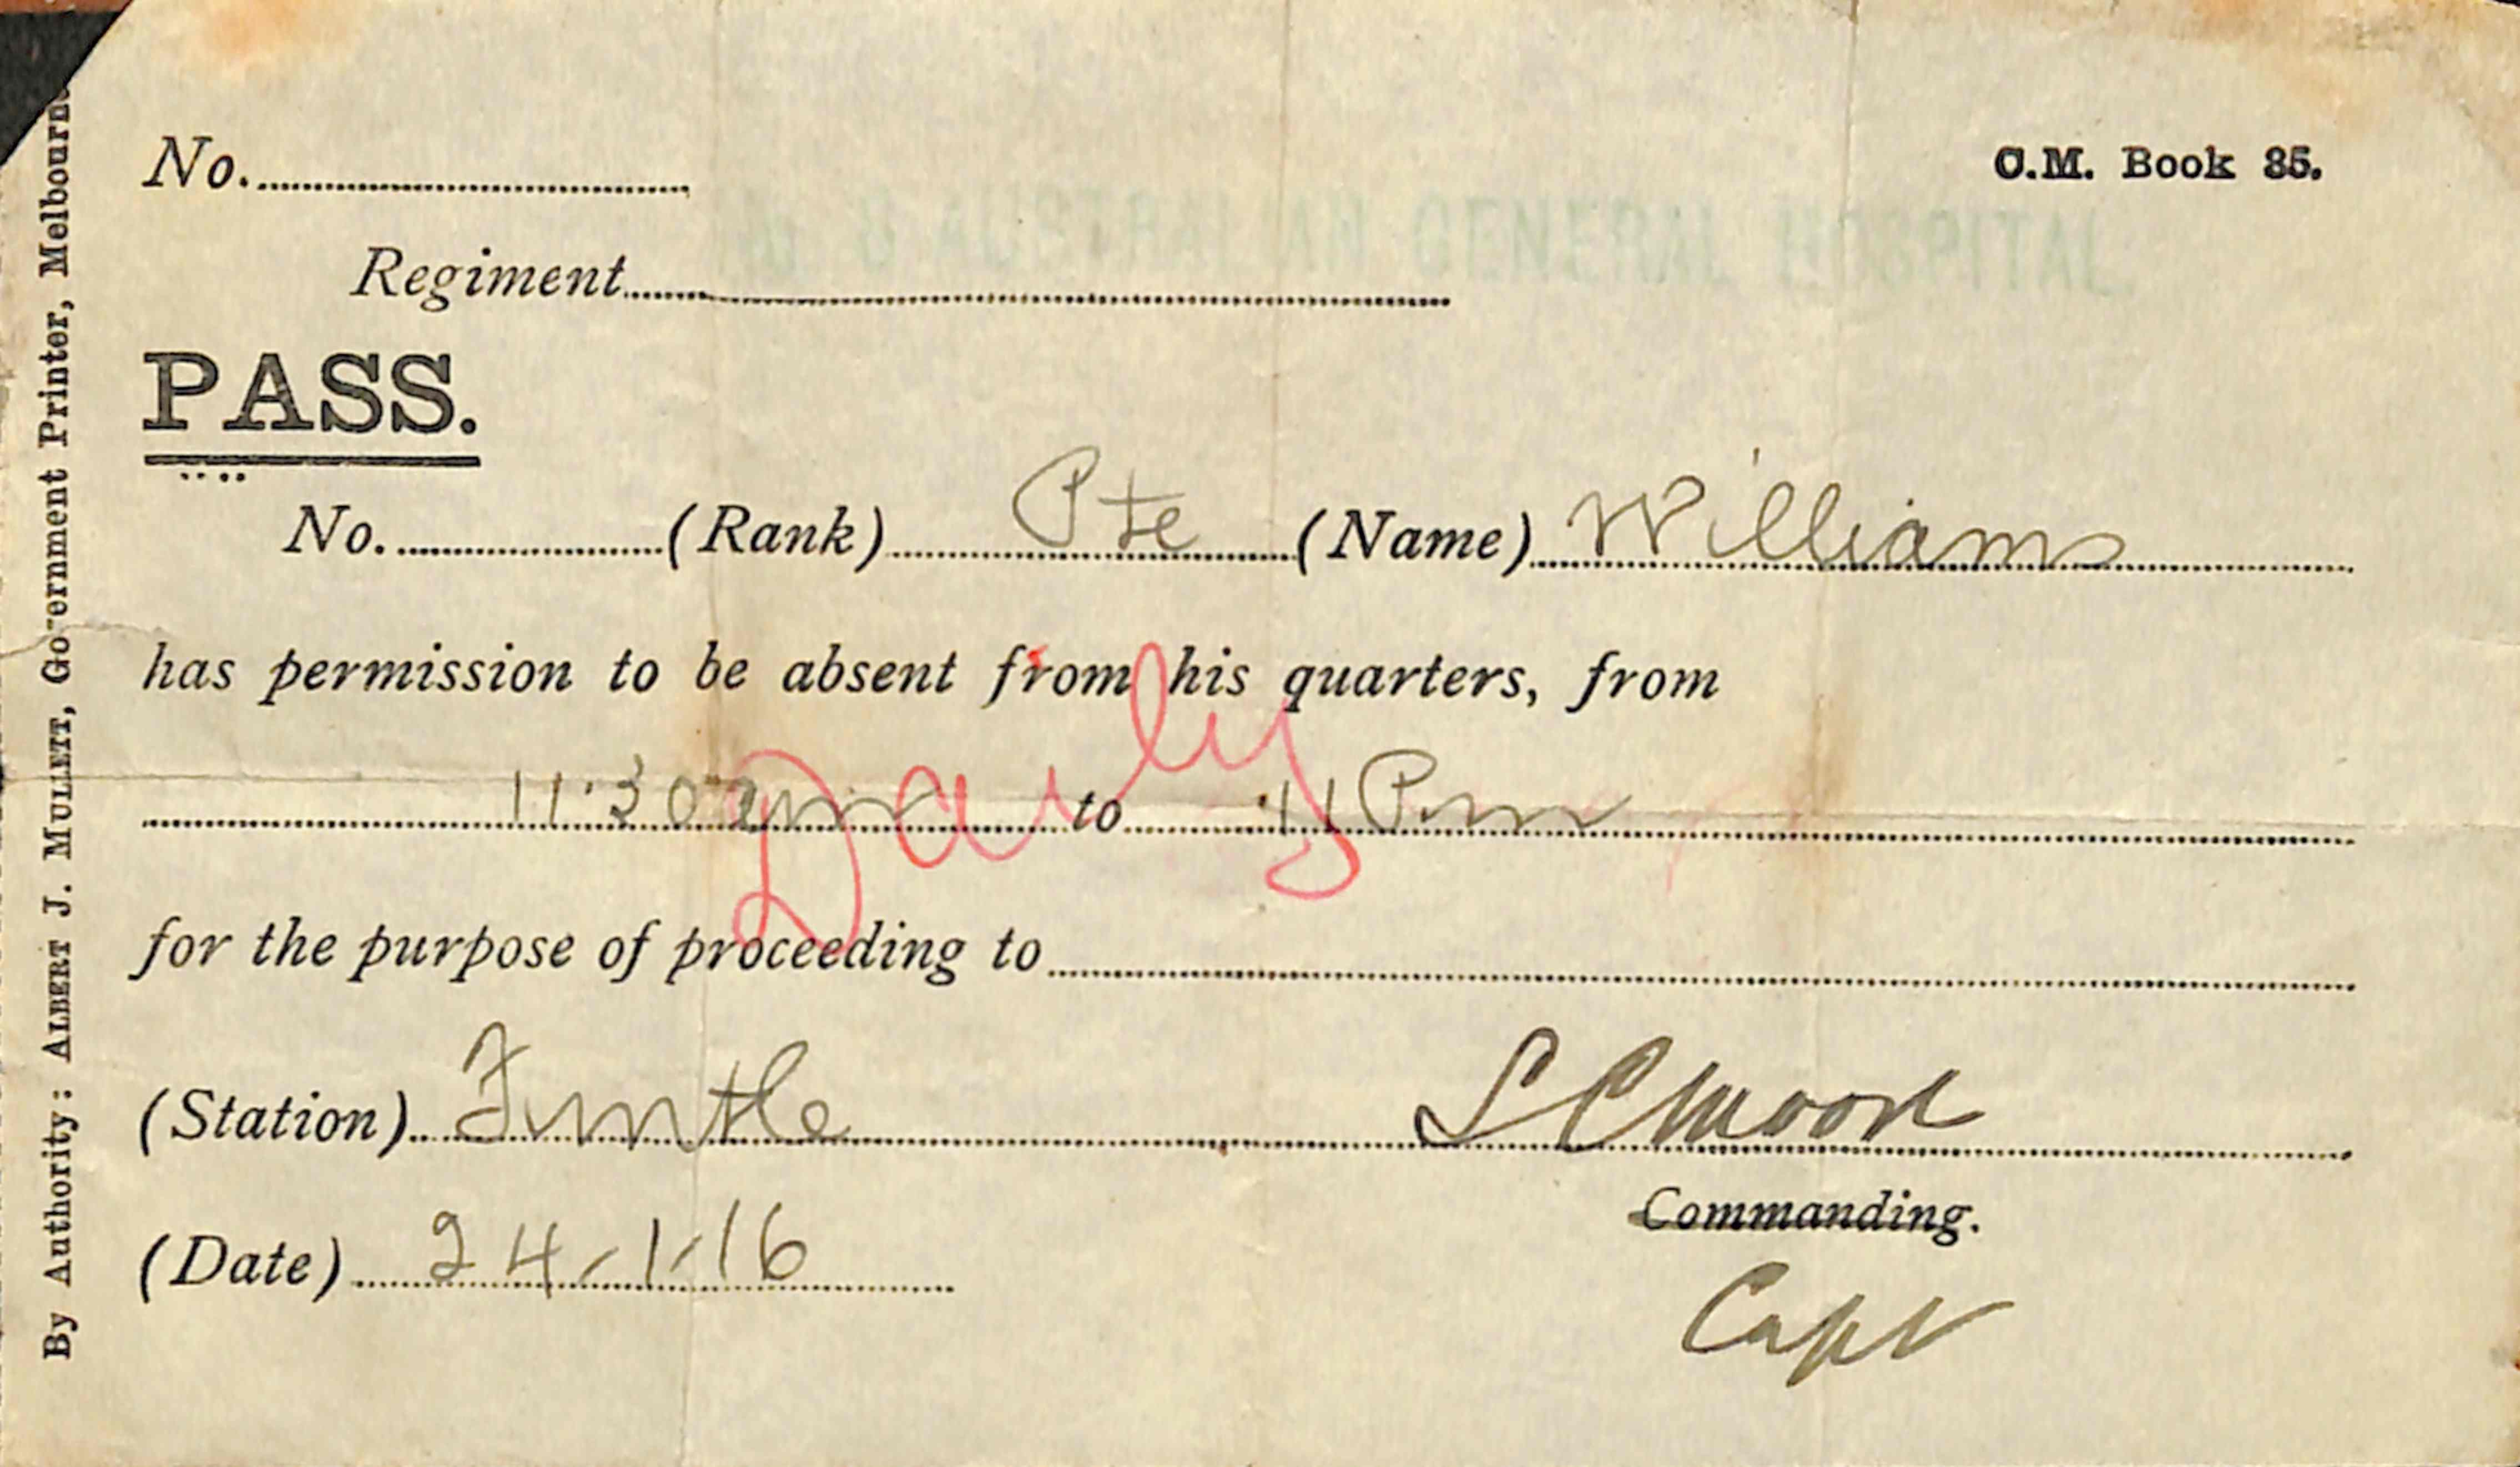 No.
C.M. Book 35.
AUSTRALIAN GENERAL HOSPITAL
Regiment
PASS.
No. (Rank) Pte (Name) Williams
has permission to be absent from his quarters, from
Daily
11.30 am to 11 Pm
for the purpose of proceeding to
(Station)
Commanding.
(Date) 24/1/16
Capt
By Authority: ALBERT J. MULLETT, Government Printer, Melbourne